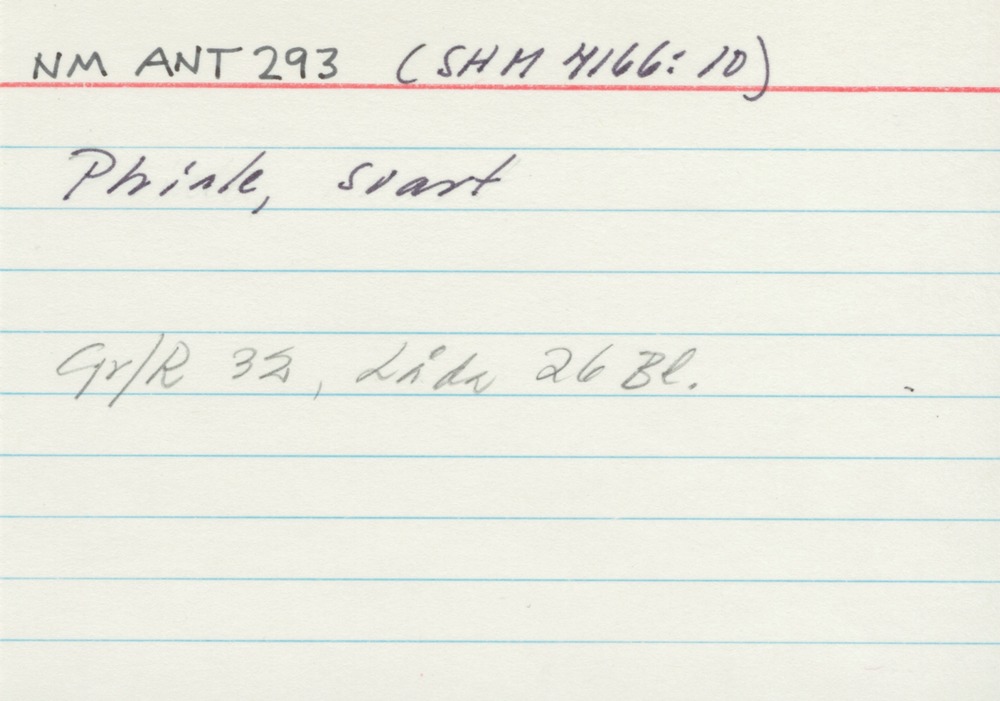 NM ANT 293 (SHM 4166:10)
Phiale, svart
Gr/R 32, Låda 26 Bl.